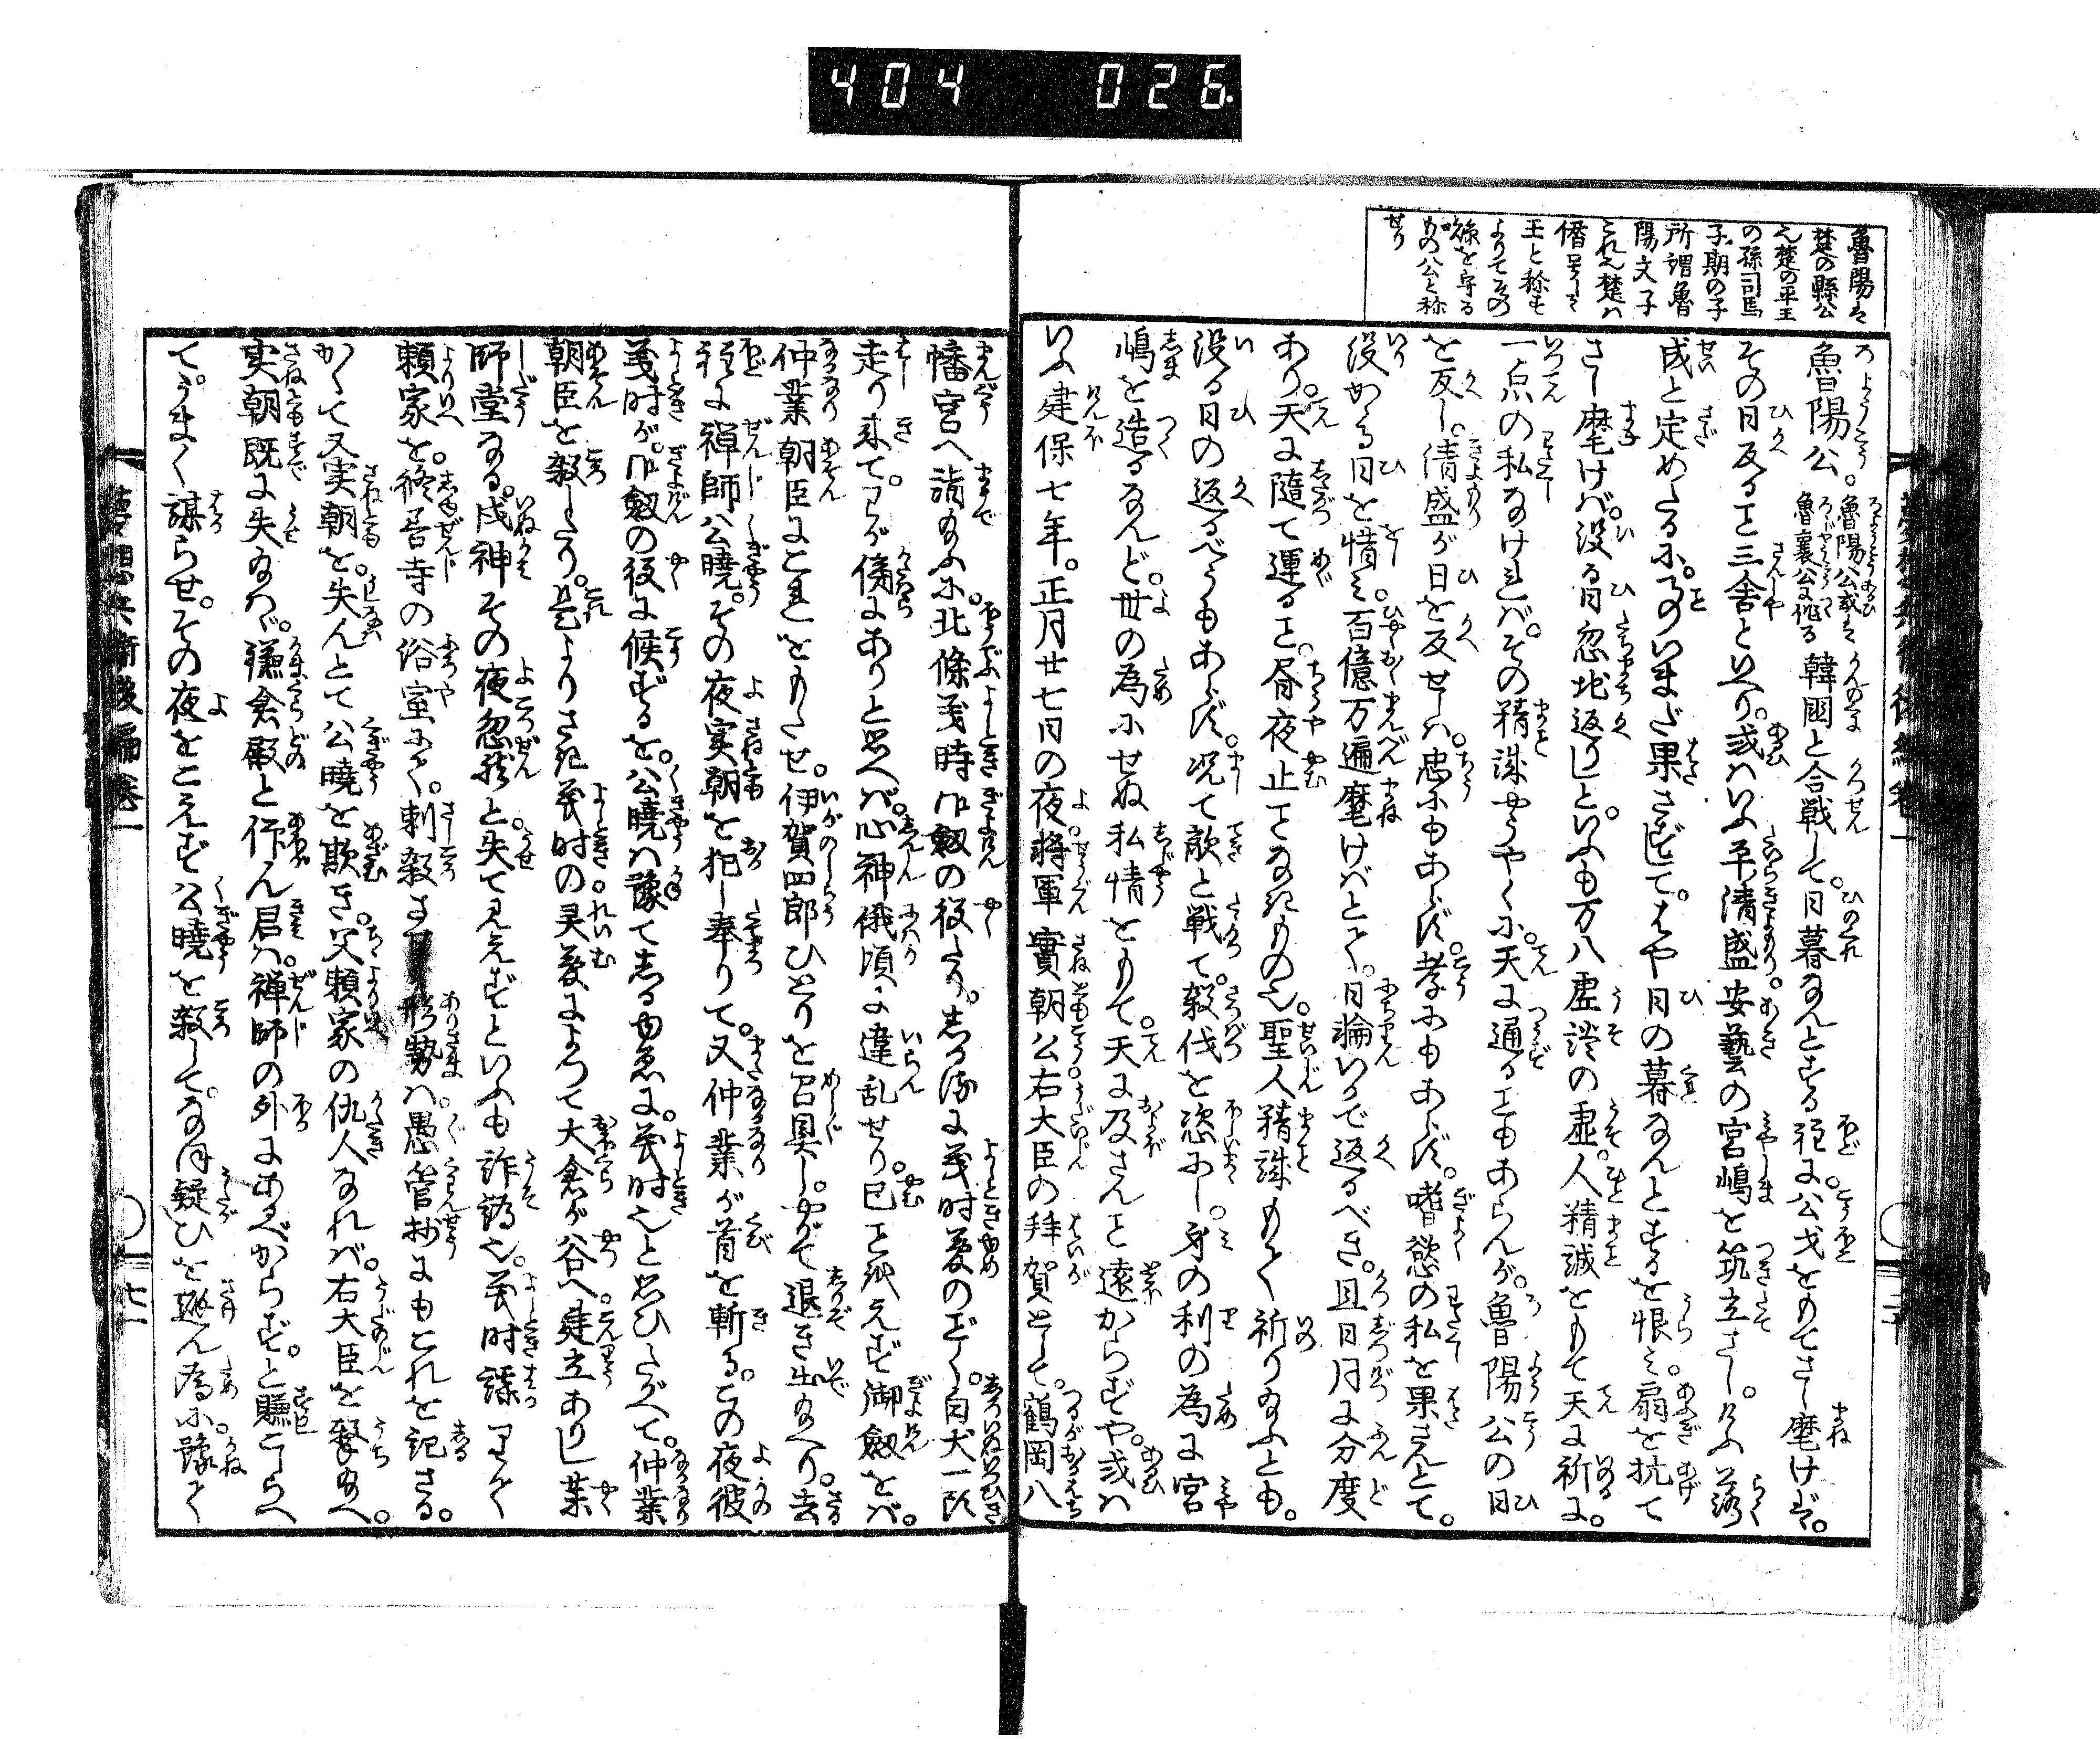 404 026.
魯陽は
楚の縣公
也楚の平王
の孫司馬
子期の子
所謂魯
陽文子
これ也楚ハ
僭号して
王と称す
よりてその
縣を守る
もの公と称
せり
魯陽公。魯陽公或は魯襄公に作る韓國と合戦して。日暮なんとする程に。公戈をもてさし麾けば。
その日反ること三舎といへり。或ハいふ平清盛安藝の宮嶋を筑立さし。けふ落
成と定めたるに。ことのいまだ果さずして。はや日の暮なんとするを恨み。扇を抗て
さし麾けば。没る日忽地返りしと。いふも万八虚談の虚。人精誠をもて天に祈に。
一点の私なければ。その精誠やうやくに。天に通ることもあらんが。魯陽公の日
を反し。清盛が日を反せしハ。忠にもあらず。孝にもあらず。嗜慾の私を果さんとて。
没かる日を惜み。百億万遍麾けばとて。日輪いかで返るべき。且日月に分度
あり。天に隨て運ること。昼夜止ことなきもの也。聖人精誠もて祈り給ふとも。
没る日の返るべうもあらず。况て敵と戦て。殺伐を恣にし。身の利の為に宮
嶋を造るなんど。世の為にせぬ私情をもて。天に及さんこと遠からずや。或ハ
いふ建保七年。正月廿七日の夜。將軍實朝公右大臣の拜賀として。鶴岡八
幡宮へ詣給ふに。北條義時御劔の役たり。しかるに義時夢のごとく。白犬一疋
走り来て。わが傍にありと思へば。心神俄頃に違乱せり。已ことを得ず御劔をば。
仲業朝臣にこれをもたせ。伊賀四郎ひとりを召具し。やがて退き出給へり。去
程に禅師公曉。その夜実朝を犯し奉りて。又仲業が首を斬る。この夜彼
義時が。御劔の役に候ずるを。公曉ハ豫て志るゆゑに。義時也と思ひたがへて。仲業
朝臣を殺したり。是よりさき義時の灵夢によつて大倉が谷へ。建立ありし薬
師堂なる。戌神その夜忽然と。失て見えずといふも詐譌也。義時謀りて
頼家を。修善寺の浴室にて。刺殺させし形勢ハ。愚管抄にもこれを記さる。
かくて又実朝を。失んとて公曉を欺き。父頼家の仇人なれば。右大臣を撃給へ。
実朝既に失給ハゞ。鎌倉殿と仰ん君ハ。禅師の外にあるべからず。と賺こしらへ
て。うまく謀らせ。その夜をこえず公曉を殺して。なほ疑ひを避ん為に。豫て